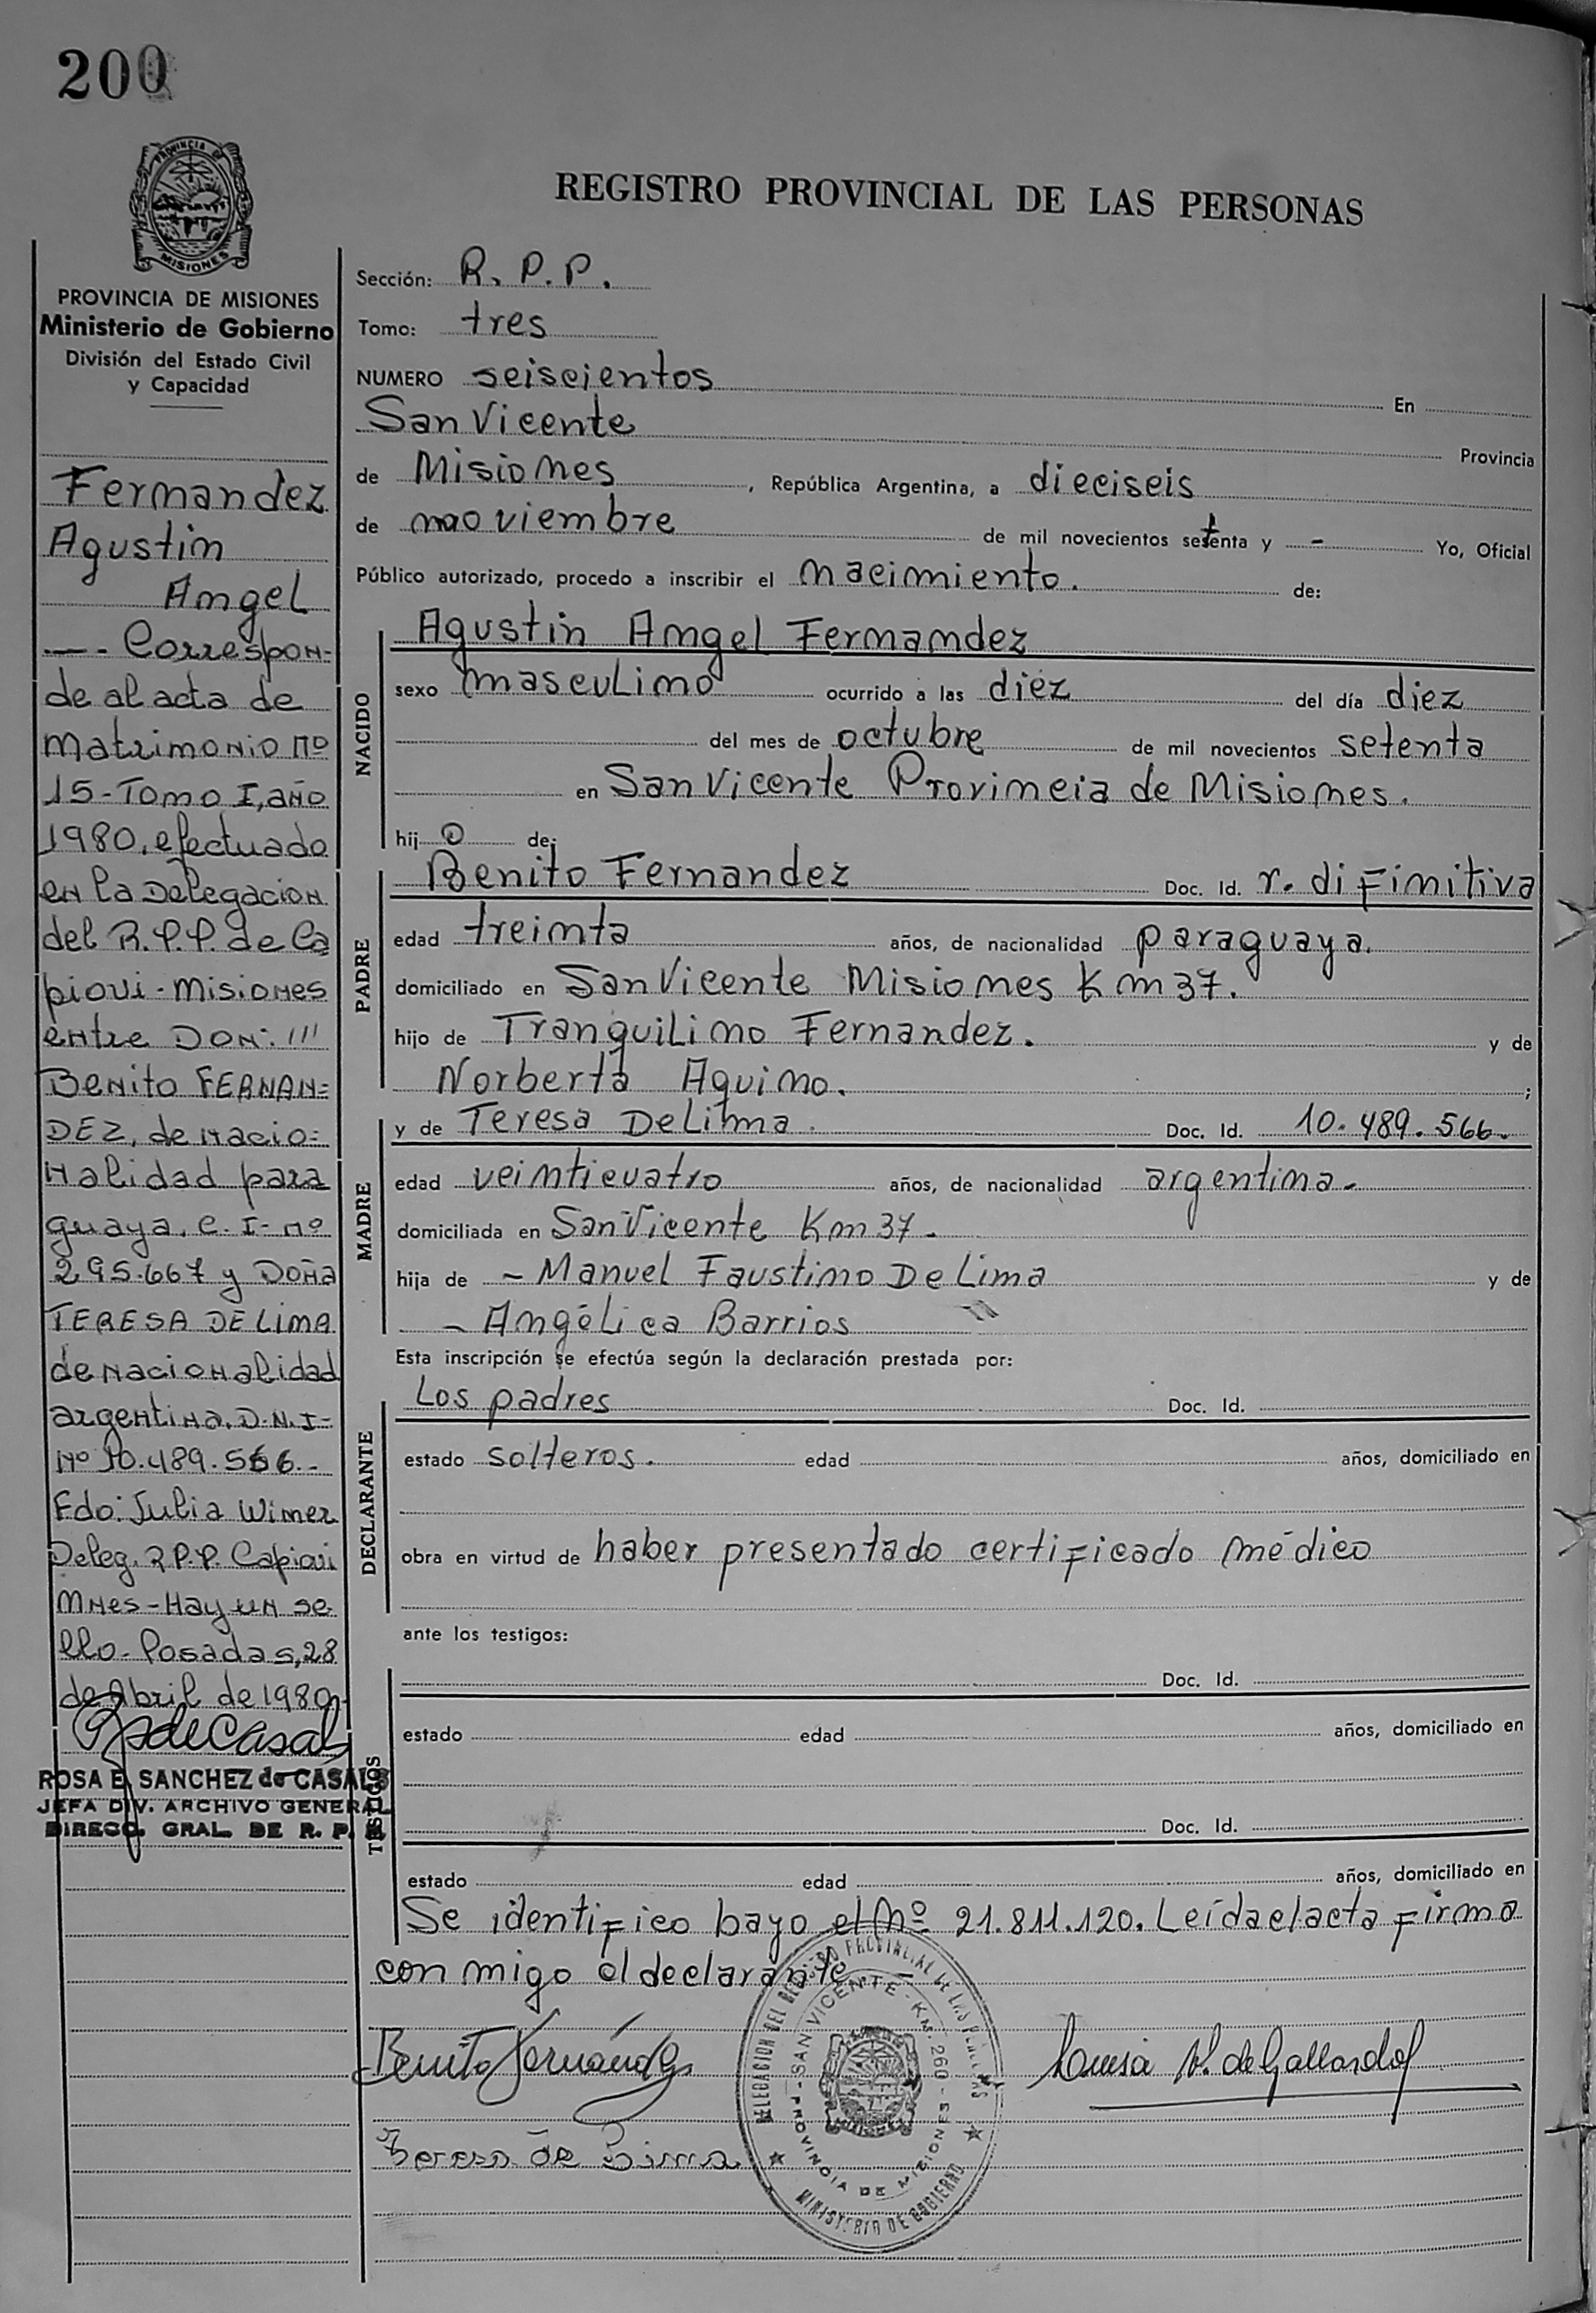 200
PROVINCIA DE
MISIONES
PROVINCIA DE MISIONES
Ministerio de Gobierno
División del Estado Civil
y Capacidad
Fernandez
Agustin
Angel
—. Correspon-
de al acta de
Matrimonio nº
15-Tomo I, año
1980, efectuado
en la Delegacion
del R.P.P. de Ca
piovi-Misiones
entre DON: '''
Benito FERNAN=
DEZ, de nacio=
nalidad para
guaya, C.I-nº
295.667 y DOÑA
TERESA DE Lima
de nacionalidad
argentina, D.N.I-
Nº 10.489.566.-
Fdo: Julia Wimer
Deleg. R.P.P. Capiovi
Mnes-Hay un se-
llo- Posadas, 28
de Abril de 1980
ROSA E. SANCHEZ de CASALS
JEFA DIV. ARCHIVO GENERAL
DIRECC. GRAL. DE R. P. P.
REGISTRO PROVINCIAL DE LAS PERSONAS
Sección: R. P. P.
Tomo: tres
NUMERO seiscientos En
San Vicente Provincia
de Misiones, República Argentina, a dieciseis
de noviembre de mil novecientos setenta y - Yo, Oficial
Público autorizado, procedo a inscribir el nacimiento. de:
NACIDO
Agustin Angel Fernandez
sexo masculino ocurrido a las diez del día diez
del mes de octubre de mil novecientos setenta
en San Vicente Provincia de Misiones.
hij o de:
PADRE
Benito Fernandez Doc. Id. r. difinitiva
edad treinta años, de nacionalidad paraguaya.
domiciliado en San Vicente Misiones Km 37.
hijo de Tranquilino Fernandez. y de
Norberta Aquino. ;
MADRE
y de Teresa De Lima. Doc. Id. 10.489.566.
edad veinticuatro años, de nacionalidad argentina.
domiciliada en San Vicente Km 37.
hija de - Manuel Faustino De Lima y de
- Angélica Barrios
Esta inscripción se efectúa según la declaración prestada por:
DECLARANTE
Los padres Doc. Id.
estado solteros. edad años, domiciliado en
obra en virtud de haber presentado certificado médico
ante los testigos:
TESTIGOS
Doc. Id.
estado edad años, domiciliado en
Doc. Id.
estado edad años, domiciliado en
Se identifico bayo el Nº 21.811.120. Leída el acta firma
con migo el declarante -
Benito Fernández
Luisa V. de Gallardo
Teresa De Lima
DELEGACION DEL REGISTRO PROVINCIAL DE LAS PERSONAS
SAN VICENTE - KM. 260
PROVINCIA DE MISIONES
MINISTERIO DE GOBIERNO